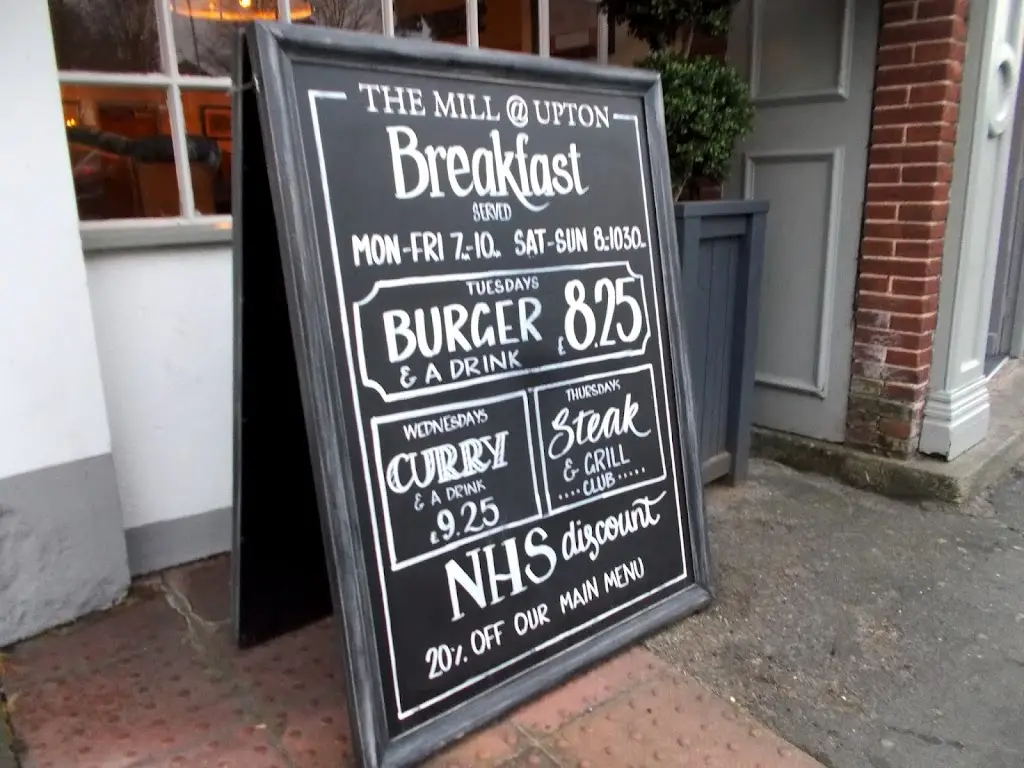 THE MILL @ UPTON
Breakfast
SERVED
MON-FRI 7-10 SAT-SUN 8-1030
TUESDAYS
BURGER
& A DRINK
£8.25
WEDNESDAYS
CURRY
& A DRINK
£9.25
THURSDAYS
Steak
& GRILL
....CLUB.....
NHS discount
20% OFF OUR MAIN MENU